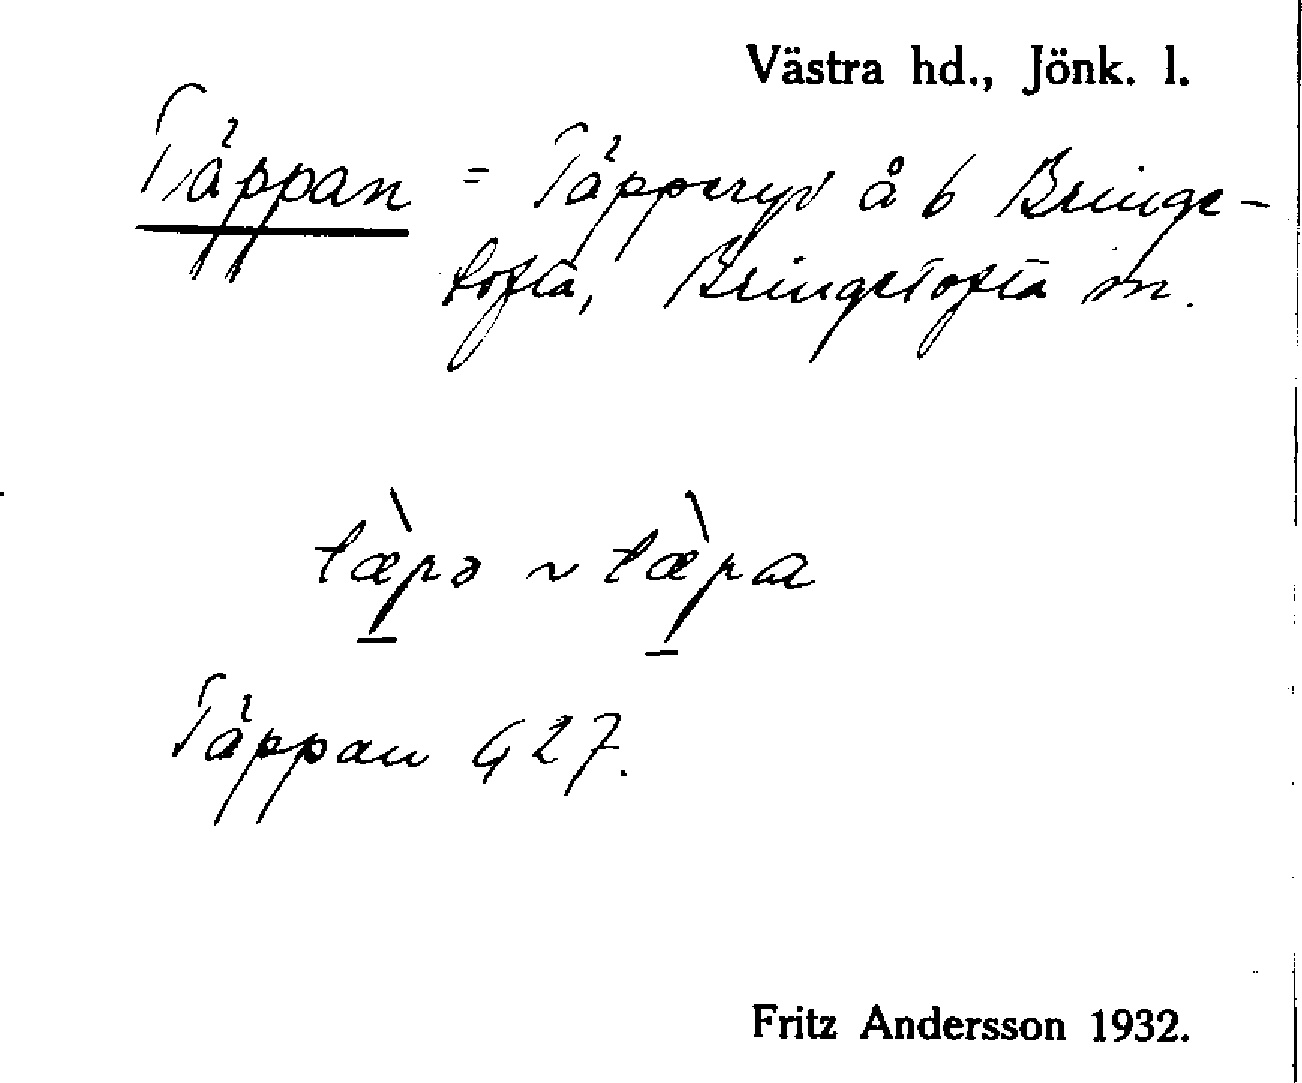 Västra hd., Jönk. l.
Täppan = Täpperyd å 6 Bringe-
tofta, Bringetofta sn.
tæ̀pə ~ tæ̀pa
Täppan G 27.
Fritz Andersson 1932.